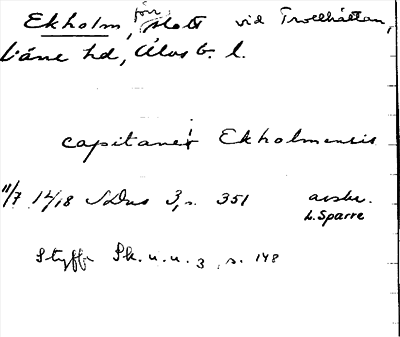 Ekholm, förr slott vid Trollhättan,
Väne hd, Älvsb. l.
capitanei Ekholmensis
11/7 1418 SDns 3, s. 351 avskr.
L. Sparre
Styffe Sk.u.u. 3, s. 148